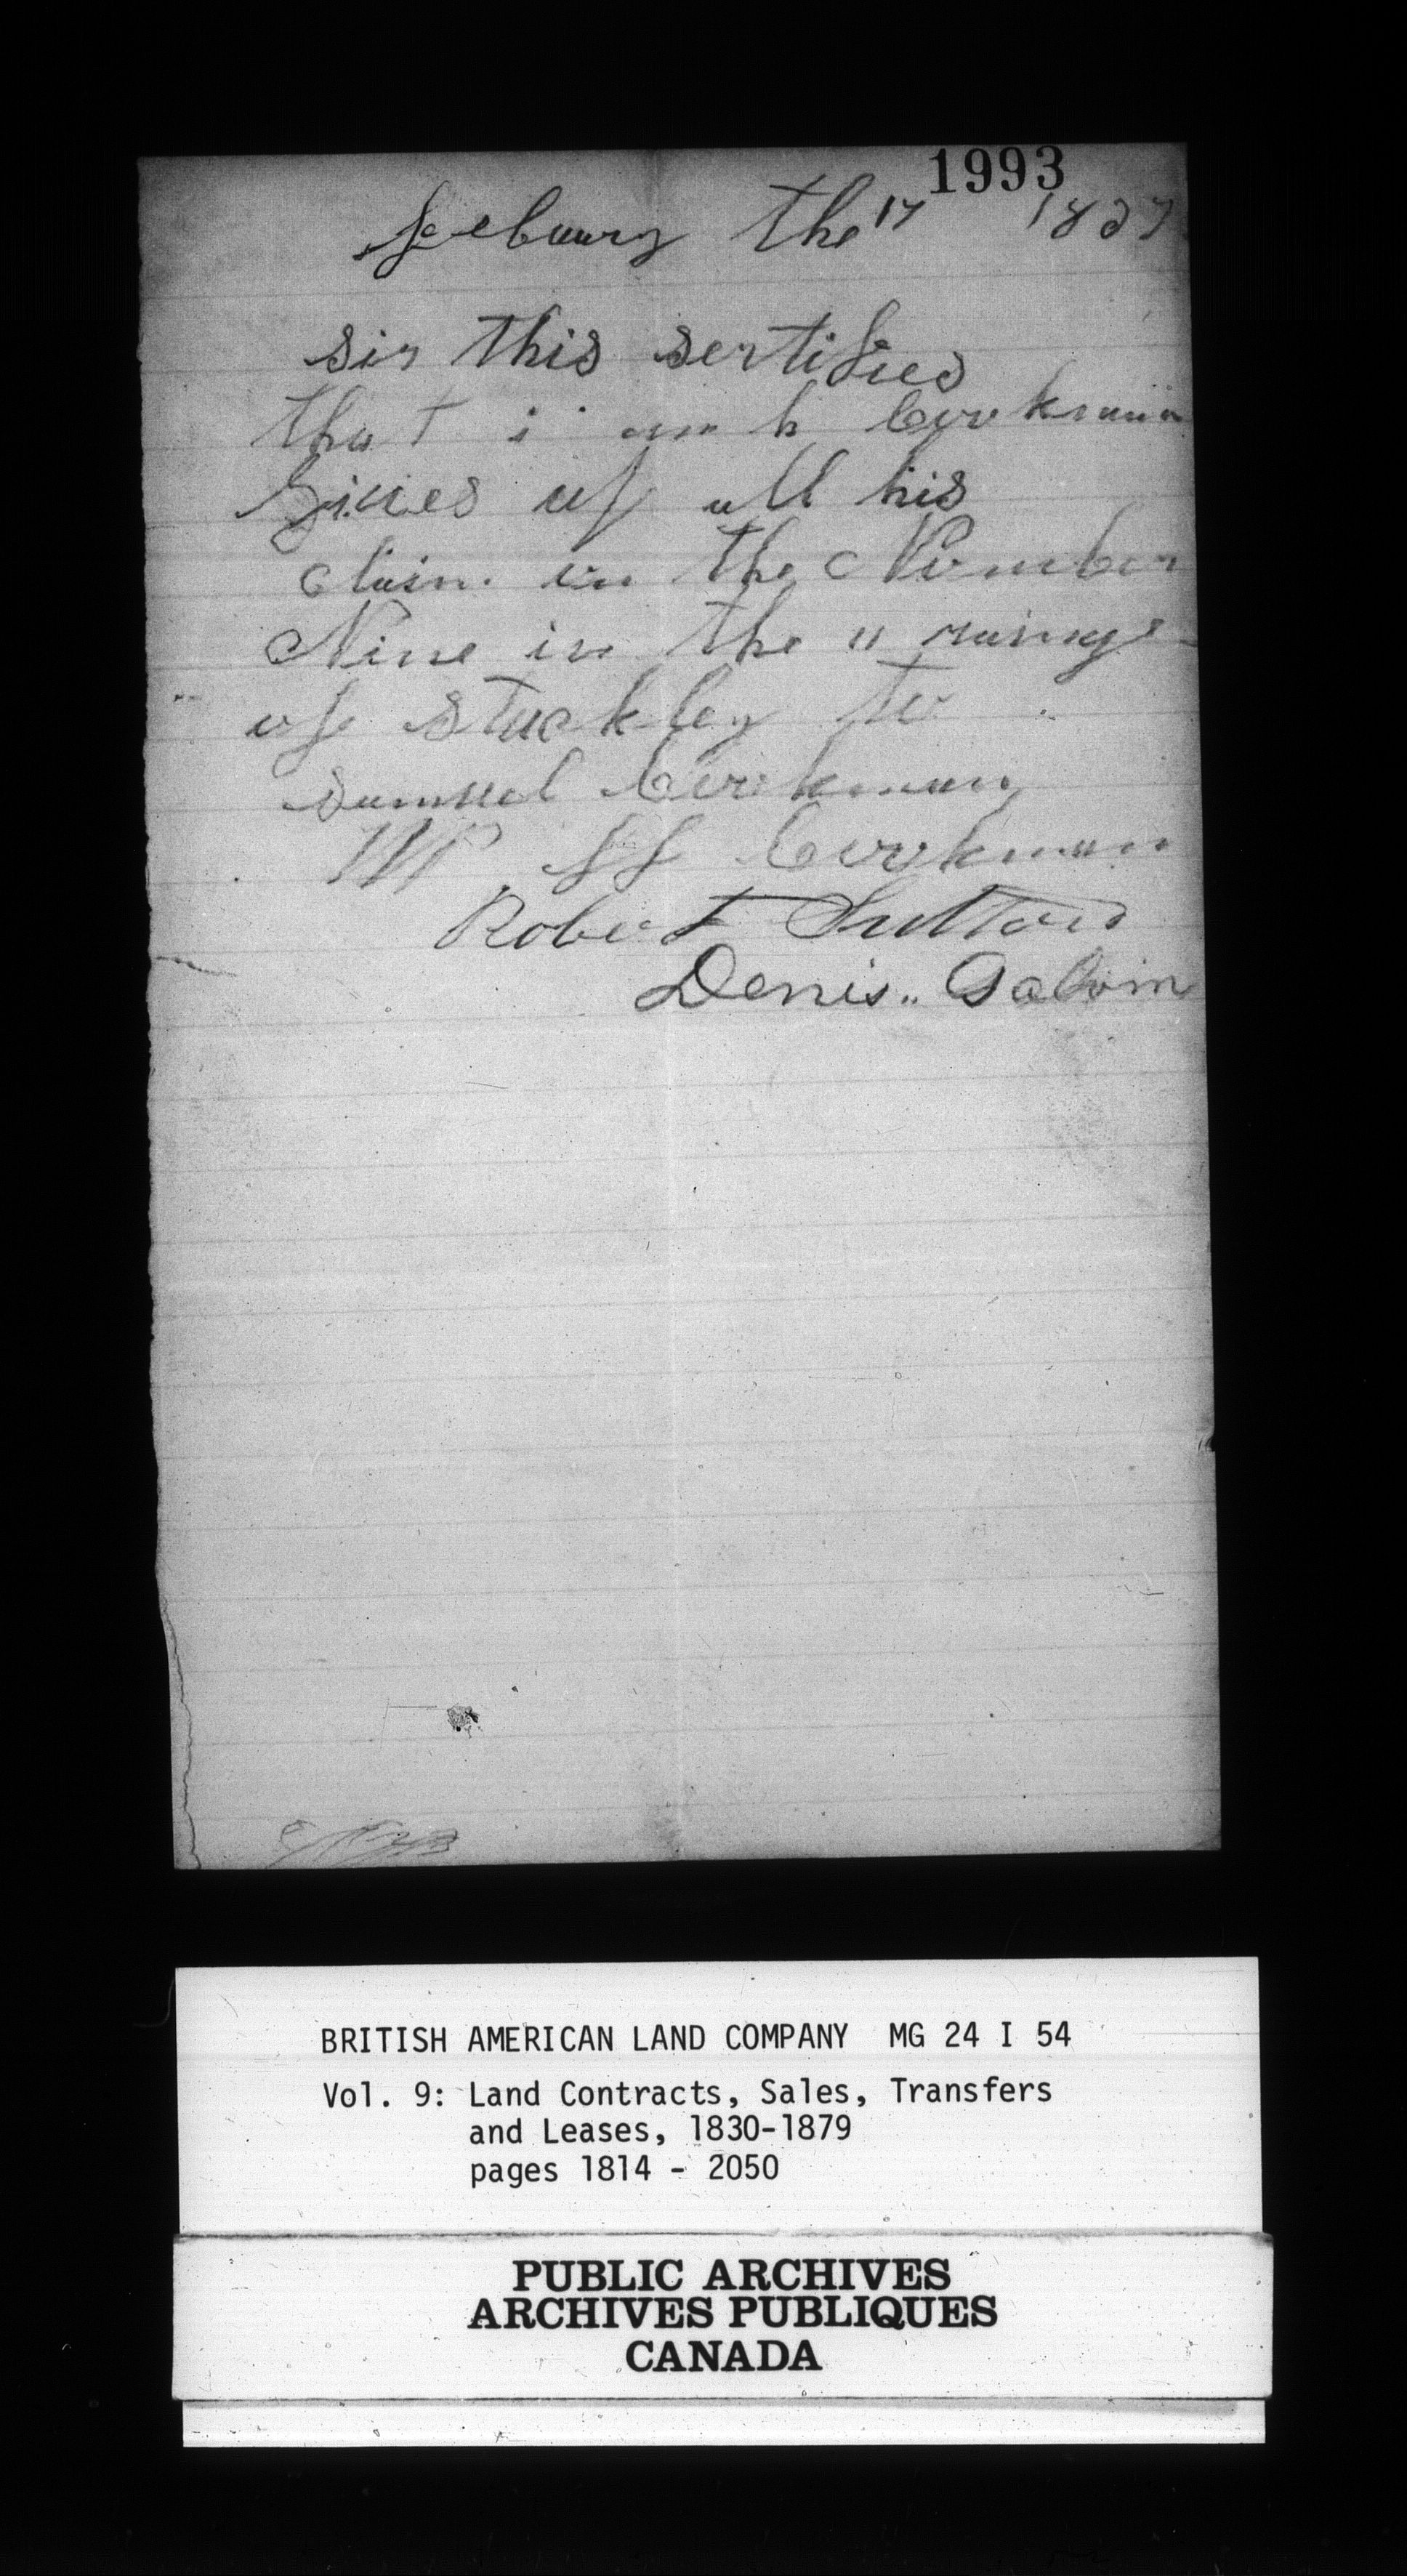 1993
febuary the 17 1827
sir this sertifies
that i am h Corkman
Gives uf all his
claim on the Number
Nine in the 11 rainge
of Stuckley to
Samuel Corkman
Robert Sutton
Denis Galvin
BRITISH AMERICAN LAND COMPANY MG 24 I 54
Vol. 9: Land Contracts, Sales, Transfers
and Leases, 1830-1879
pages 1814 - 2050
PUBLIC ARCHIVES
ARCHIVES PUBLIQUES
CANADA